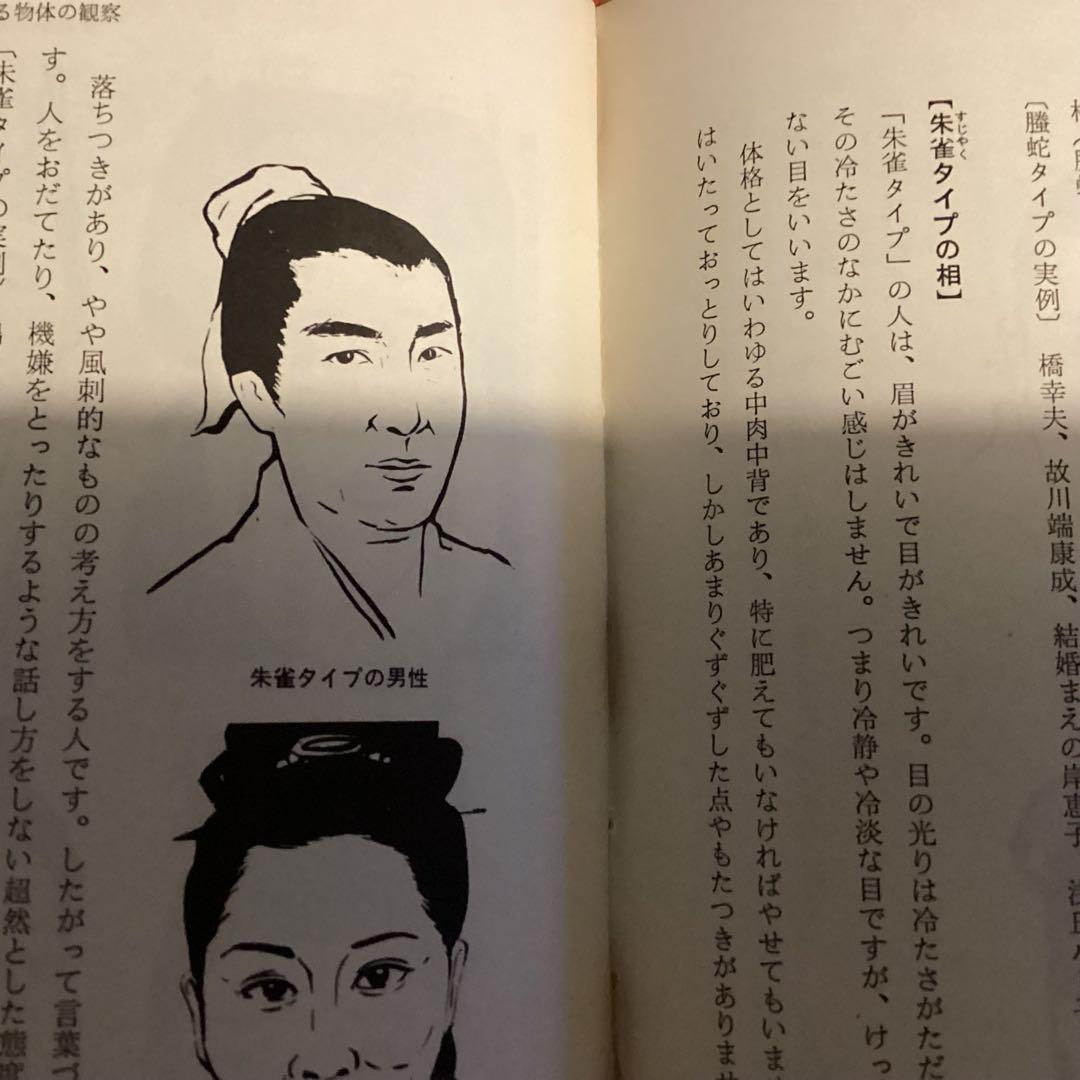 〔螣蛇タイプの実例〕　橋幸夫、故川端康成、結婚まえの岸恵子
【朱雀タイプの相】
すじやく
「朱雀タイプ」の人は、眉がきれいで目がきれいです。目の光りは冷たさがただ
その冷たさのなかにむごい感じはしません。つまり冷静や冷淡な目ですが、けっ
ない目をいいます。
体格としてはいわゆる中肉中背であり、特に肥えてもいなければやせてもいませ
はいたっておっとりしており、しかしあまりぐずぐずした点やもたつきがありませ
る物体の観察
朱雀タイプの男性
落ちつきがあり、やや風刺的なものの考え方をする人です。したがって言葉づ
す。人をおだてたり、機嫌をとったりするような話し方をしない超然とした態度
〔朱雀タイプの実例〕